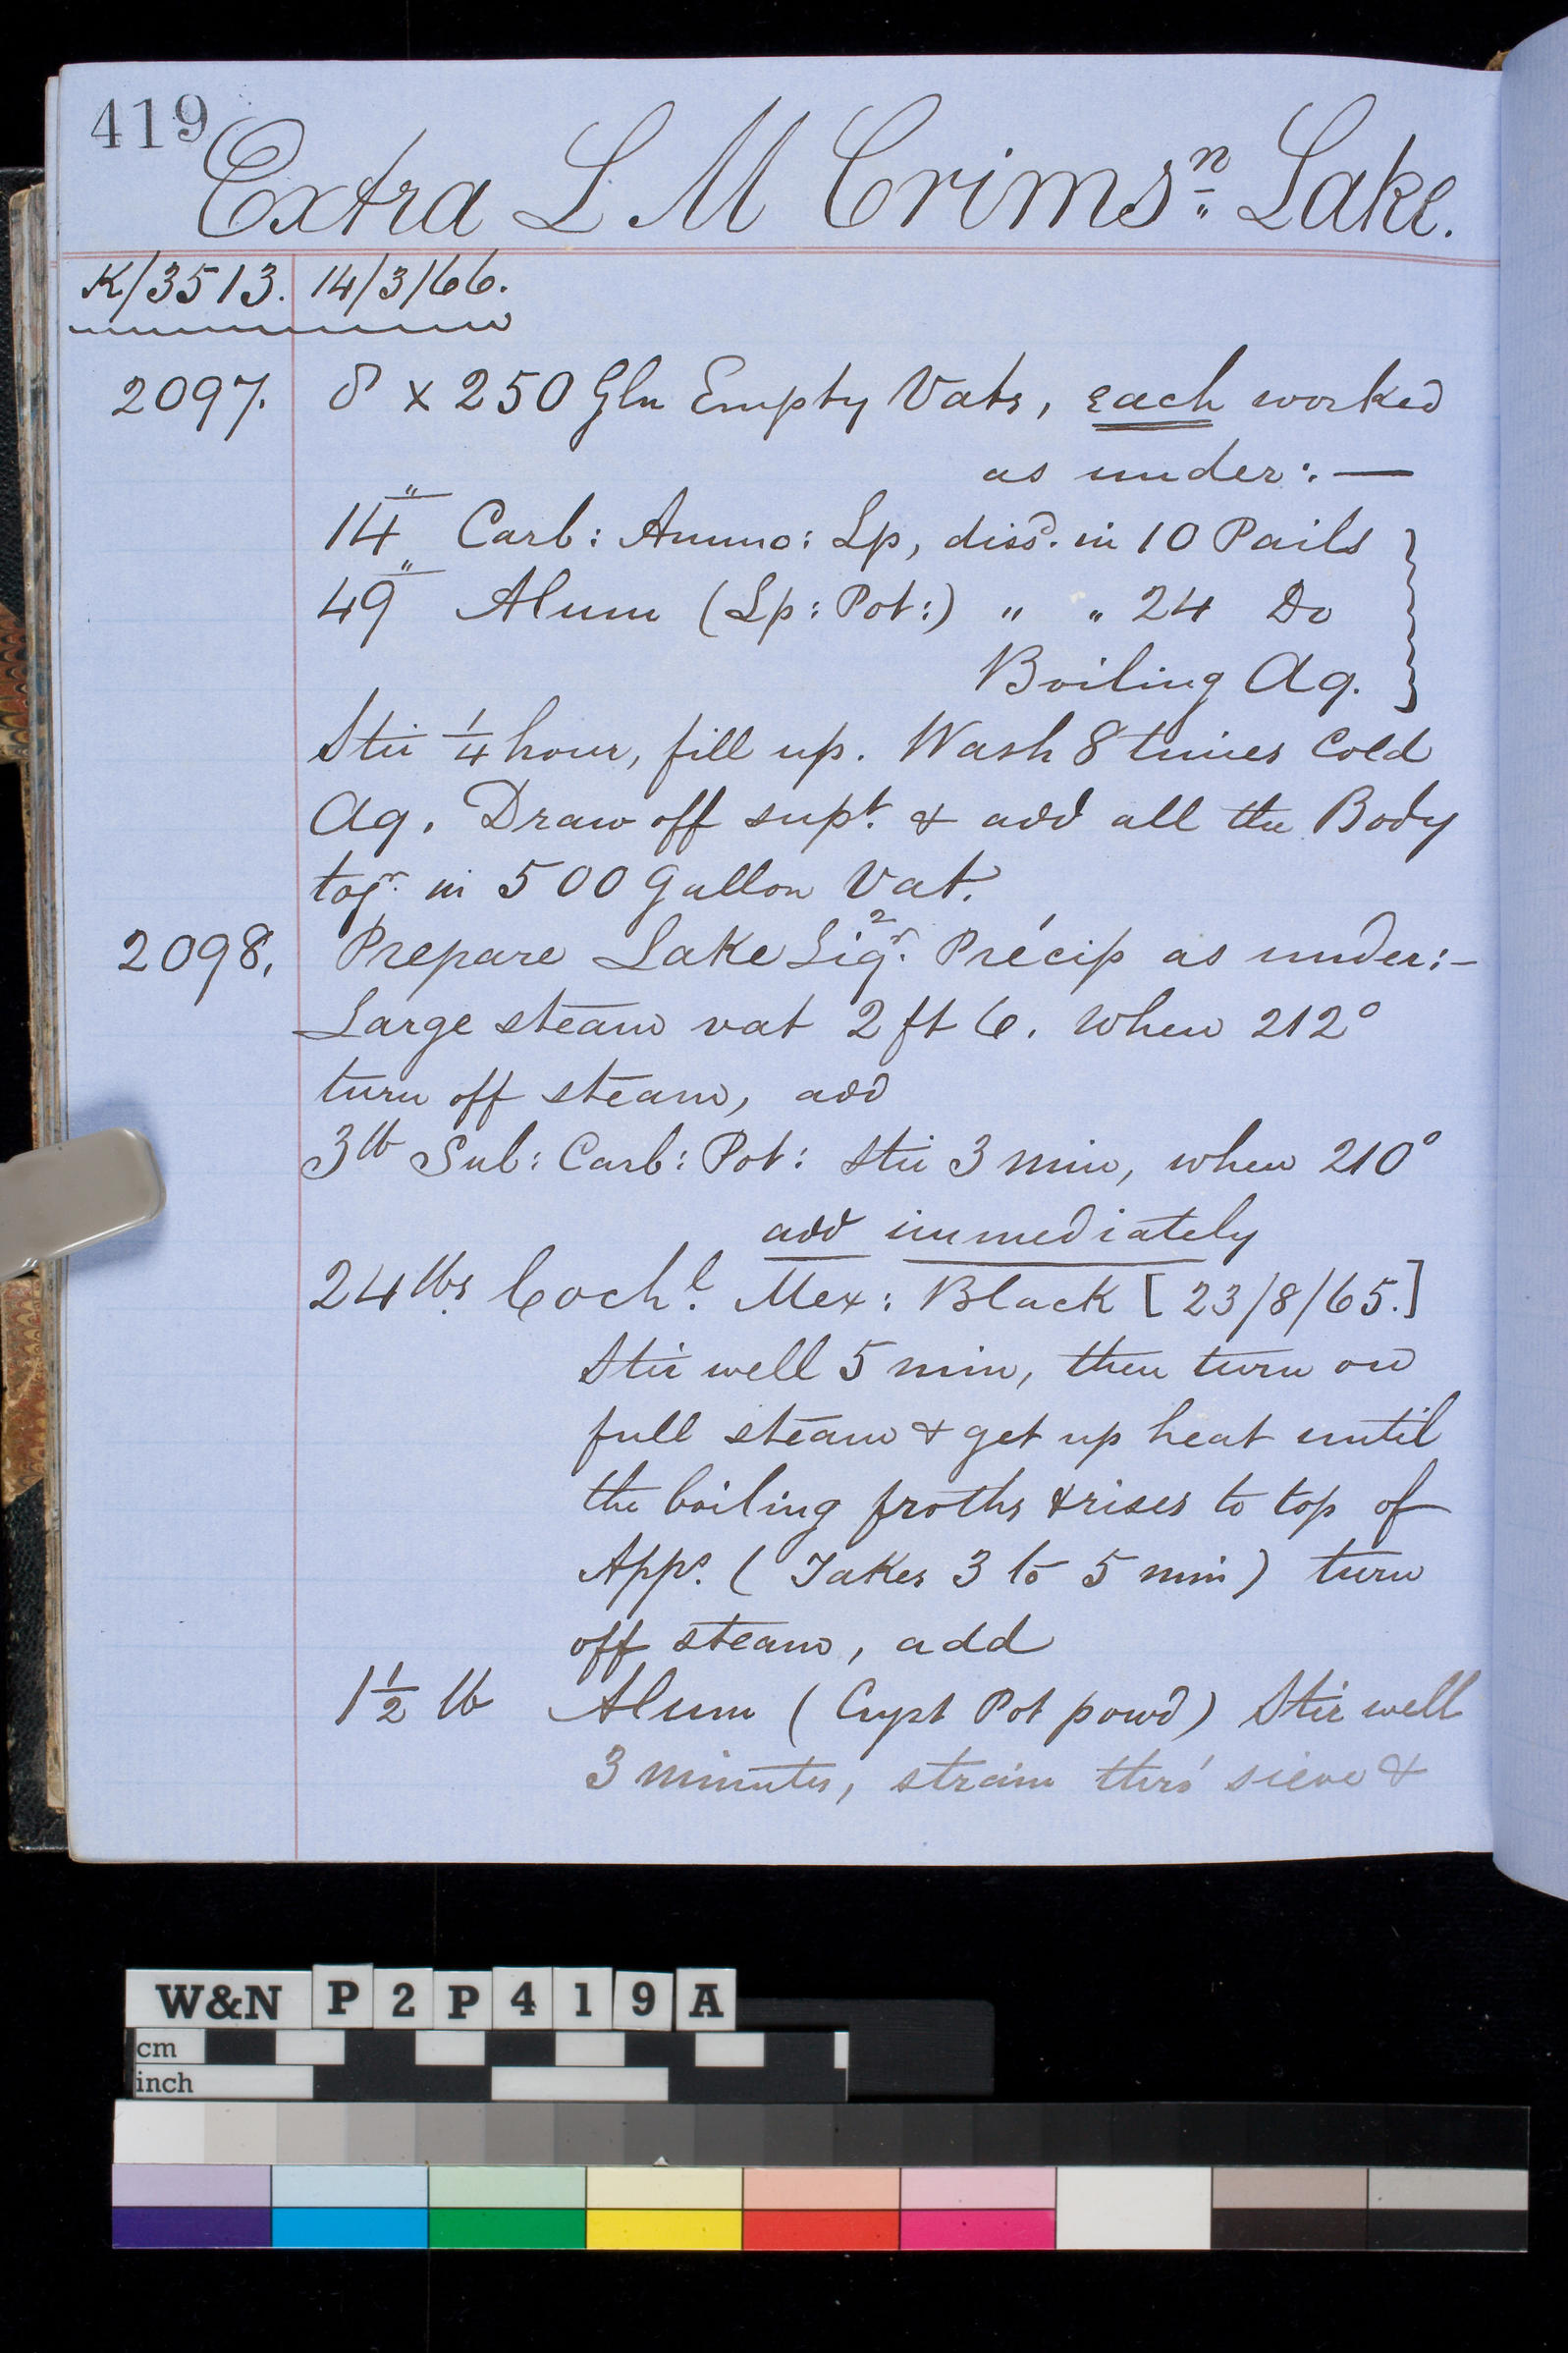 419
Extra L M Crimsⁿ Lake.
K/3513. 14/3/66.
2097. 8 x 250 Gln Empty Vats, each worked
as under:—
14" Carb: Ammo: Lp, dissd. in 10 Pails
49" Alum (Lp: Pot:) " " 24 Do
Boiling Aq.
Stir ¼ hour, fill up. Wash 8 times Cold
Aq. Draw off supt. & add all the Body
togr. in 500 Gallon Vat.
2098. Prepare Lake Liqr. 2 Précip as under:-
Large steam vat 2 ft 6. When 212°
turn off steam, add
3 lb Sub: Carb: Pot: Stir 3 min, when 210°
add immediately
24 lbs Cochl. Mex: Black [23/8/65.]
Stir well 5 min, then turn on
full steam & get up heat until
the boiling froths & rises to top of
Apps. (Takes 3 to 5 min) turn
off steam, add
1½ lb Alum (Cryst Pot powd) Stir well
3 minutes, strain thro' sieve &
W&N P2P419A
cm
inch